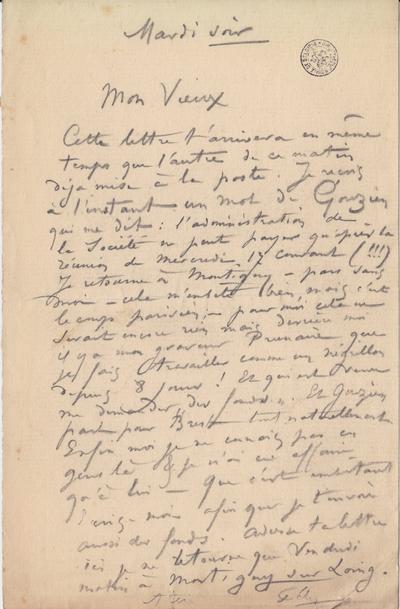 Mardi soir
Mon Vieux
Cette lettre t'arrivera en même
temps que l'autre de ce matin
déja mise à la poste. Je reçois
à l'instant un mot de Gouzien
qui me dit : l'administration de
la Société ne peut payer qu'après la
réunion de Mercredi 17 courant (!!!)
Je retourne à Montigny – pars sans
moi – cela m'embête bien, mais c'est
le coup parisien, – pour moi cela ne
serait encore rien mais derrière moi
il y a mon graveur Prunaire que
je fais travailler comme un
depuis 8 jours ! Et qui est venu
me demander des fonds.. Et Gouzien
part pour Brest tout naturellement
Enfin moi je ne connais pas ces
gens là & je n'ai eu affaire
qu'à lui – que c'est embêtant
Ecris-moi afin que je t'envoie
aussi des fonds. Adresse ta lettre
ici je ne retourne que Vendredi
matin à Montigny sur Loing.
A toi